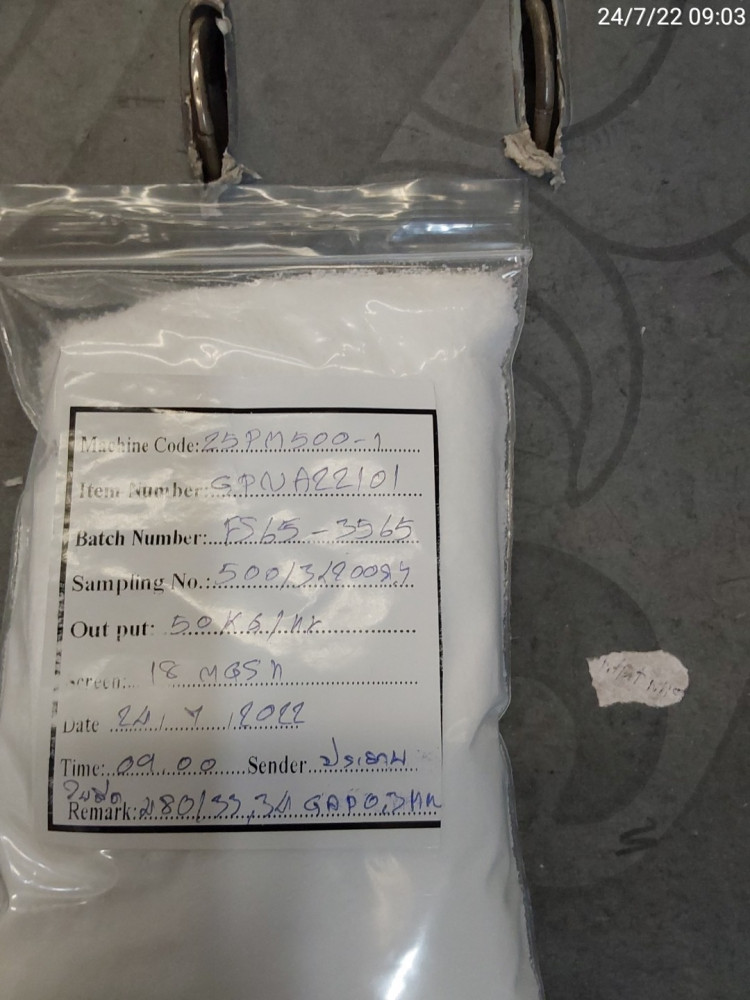 24/7/22 09:03
Machine Code: 25PM500-1
Item Number: GPNA22101
Batch Number: FS65-3565
Sampling No.:
Out put: 50 KG/Hr
Screen: 18 MGSh
Date 24/7/2022
Time: 09.00 Sender
ใบมีด
Remark: 280/33,34 GAP0.3mm